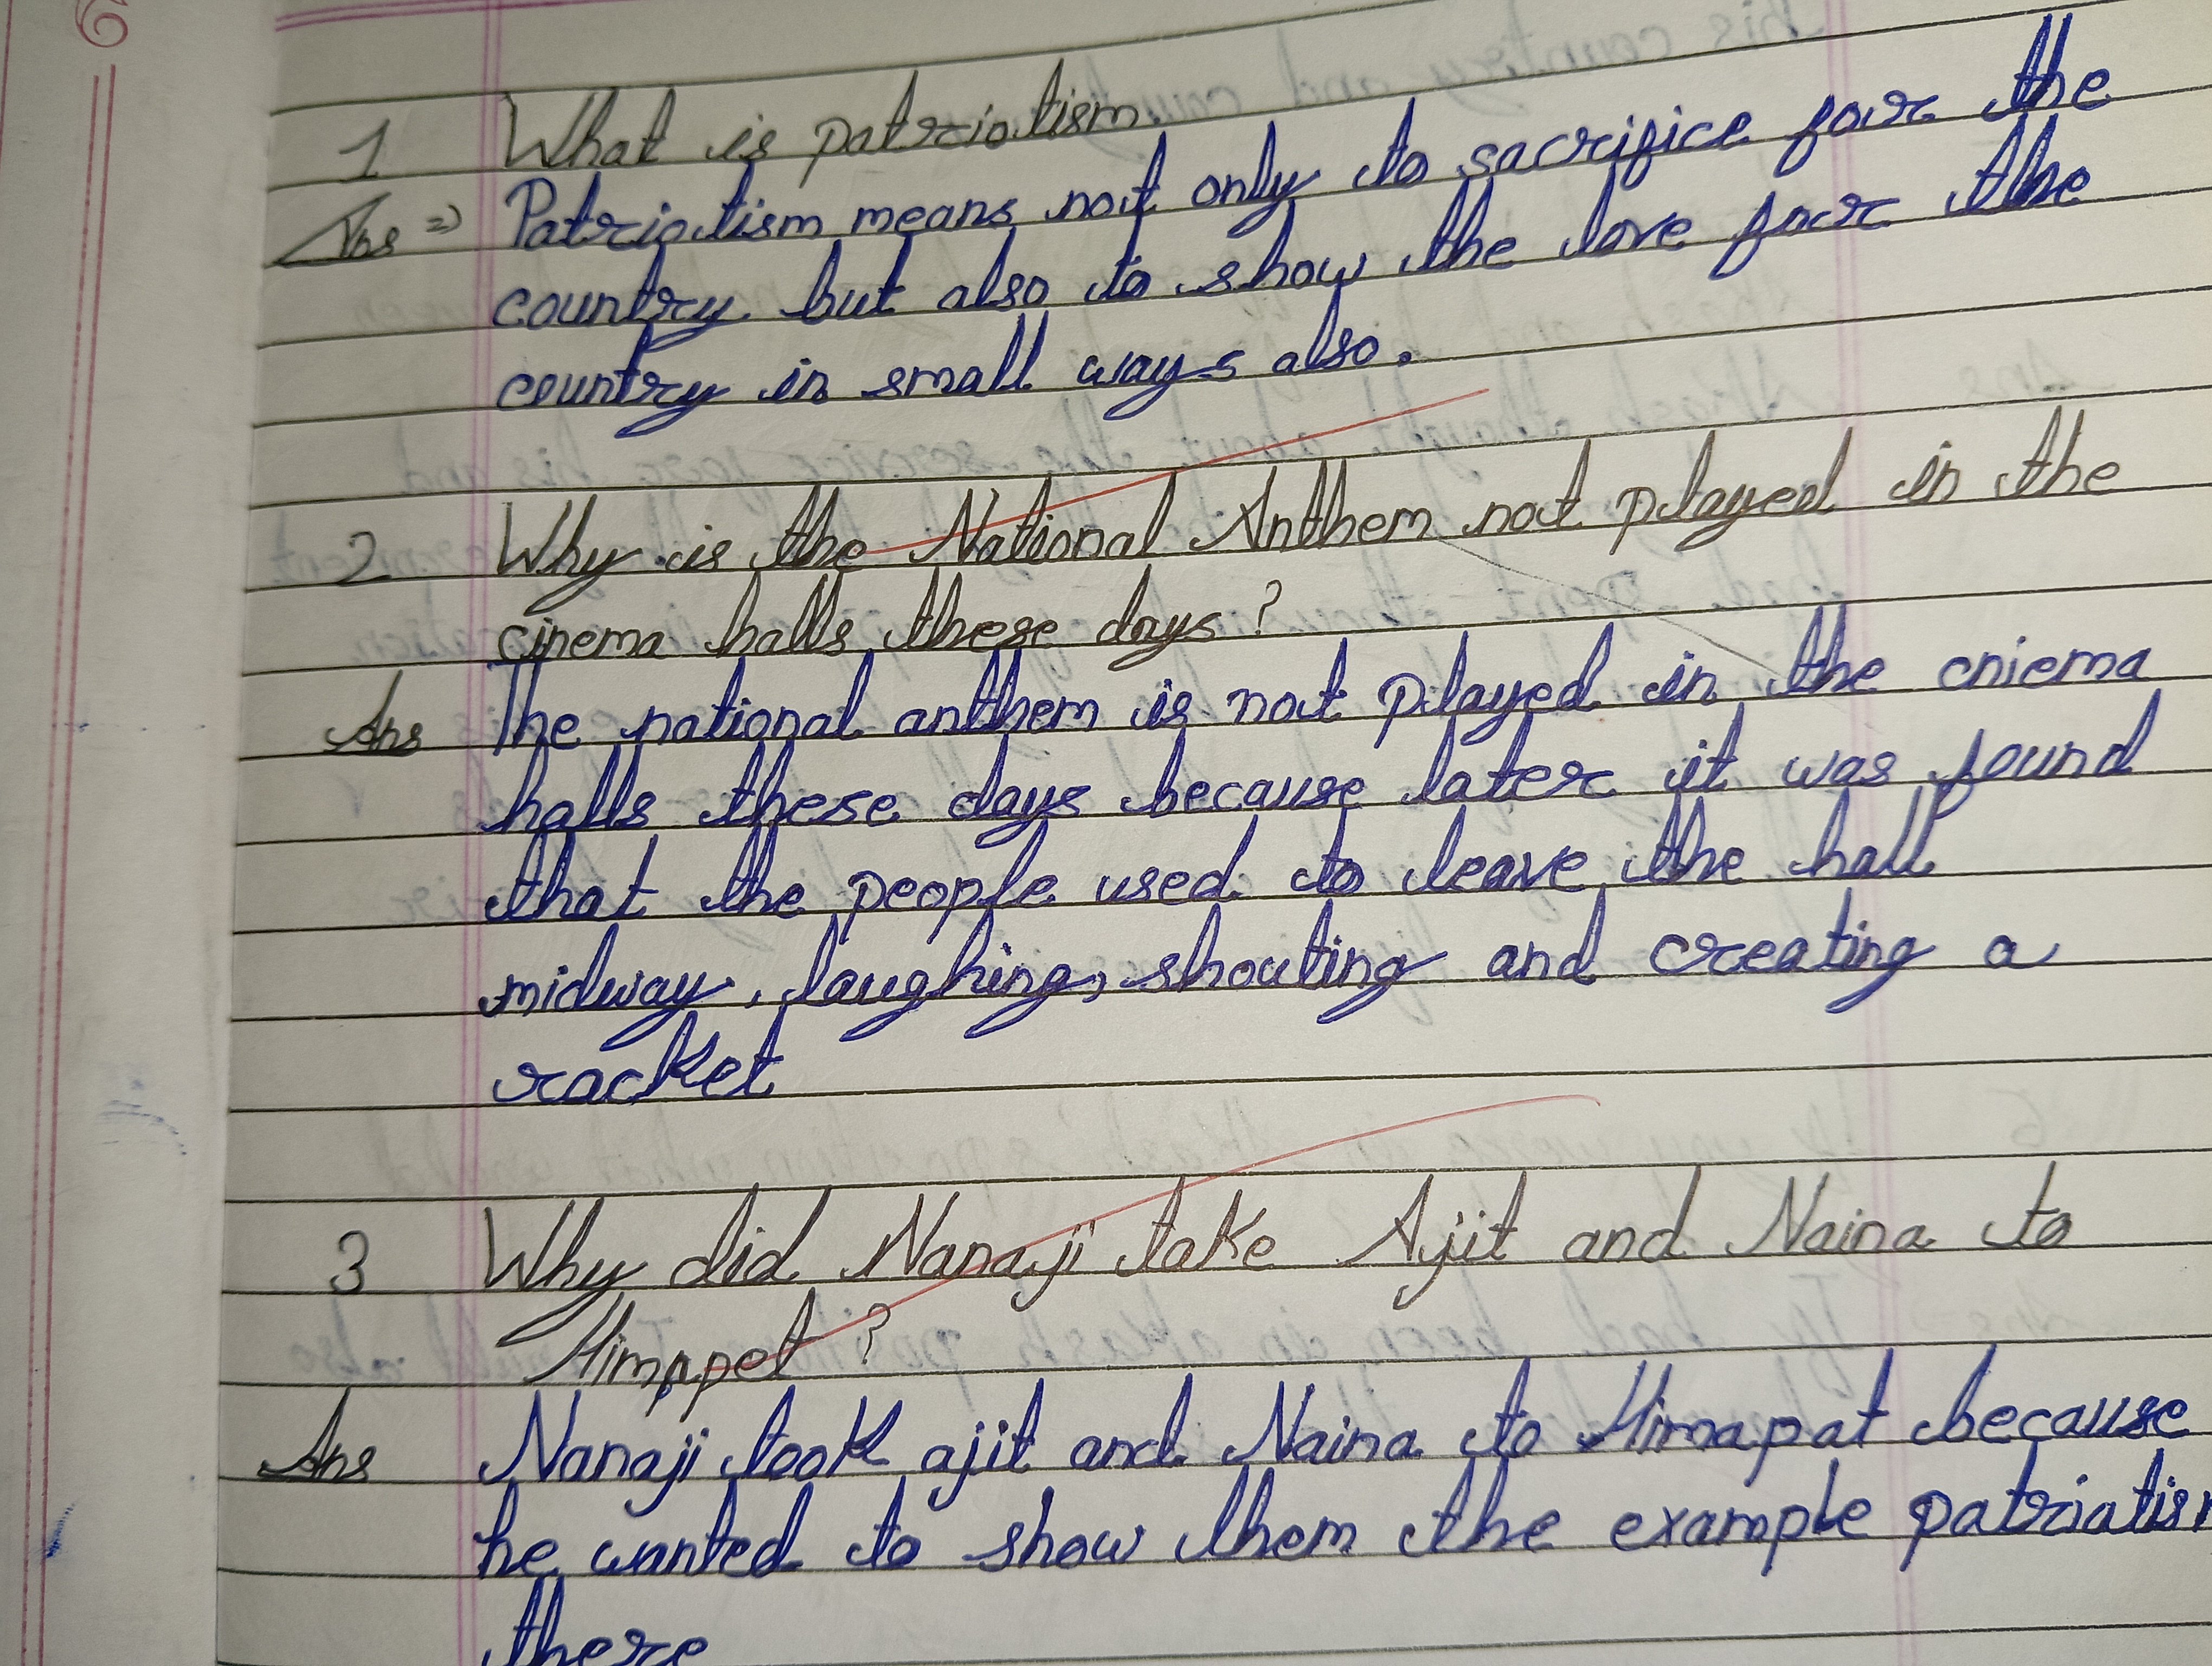 1 What is patriotism.
Ans => Patriotism means not only to sacrifice for the
country but also to show the love for the
country in small ways also.
2 Why is the National Anthem not played in the
cinema halls these days?
Ans The national anthem is not played in the cniema
halls these days because later it was found
that the people used to leave the hall
midway, laughing, shouting and creating a
racket
3 Why did Nanaji take Ajit and Naina to
Himppet?
Ans Nanaji took ajit and Naina to Himapat because
he wanted to show them the example patriatism
there